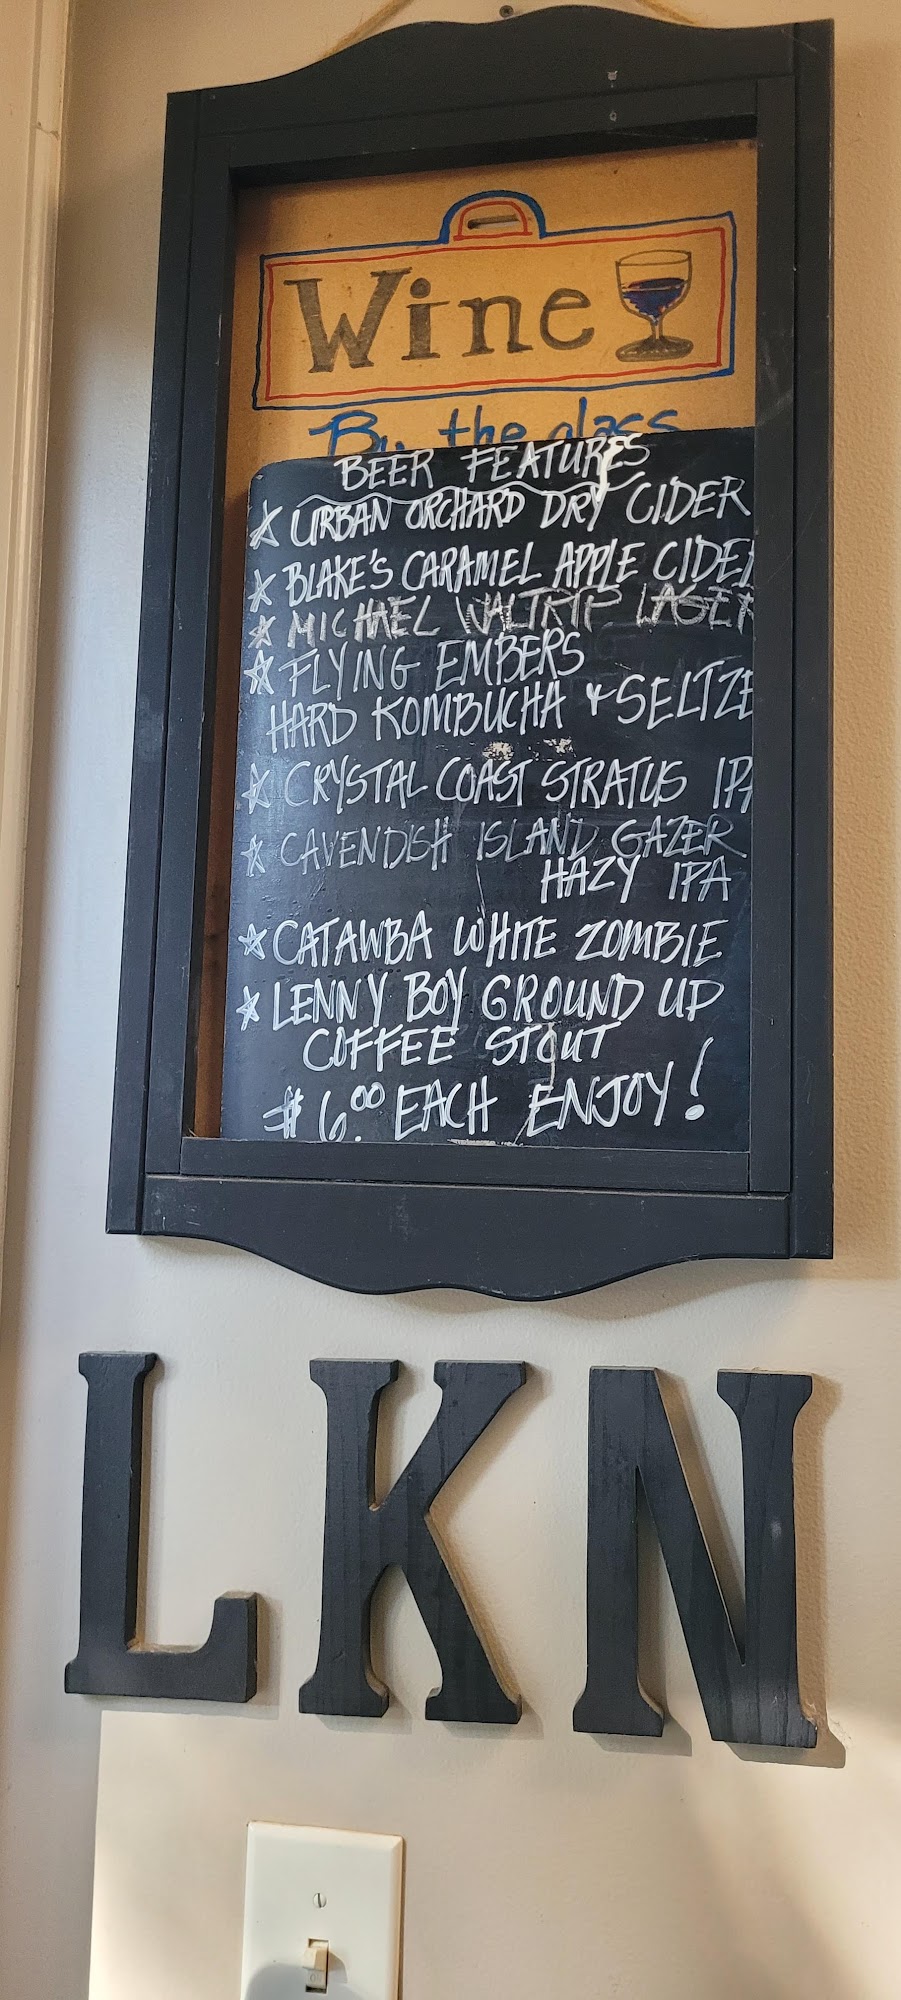 Wine
By the glass
BEER FEATURES
☆ URBAN ORCHARD DRY CIDER
☆ BLAKE'S CARAMEL APPLE CIDER
☆ MICHAEL WALTRIP LAGER
☆ FLYING EMBERS
HARD KOMBUCHA & SELTZE
☆ CRYSTAL COAST STRATUS IPA
☆ CAVENDISH ISLAND GAZER
HAZY IPA
☆ CATAWBA WHITE ZOMBIE
☆ LENNY BOY GROUND UP
COFFEE STOUT
$6.00 EACH ENJOY!
LKN